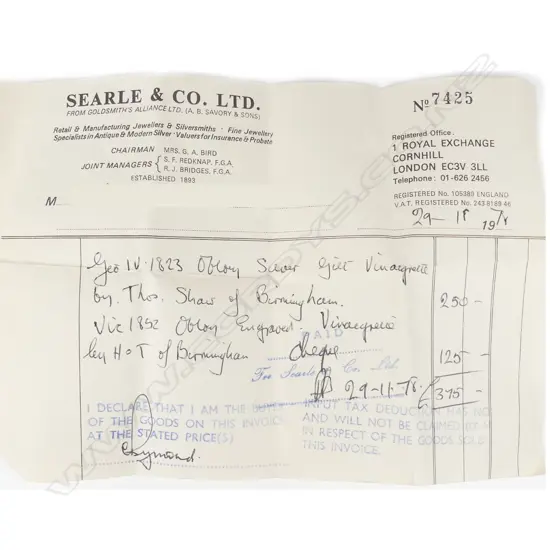 SEARLE & CO. LTD.
FROM GOLDSMITH'S ALLIANCE LTD. (A. B. SAVORY & SONS)
Retail & Manufacturing Jewellers & Silversmiths · Fine Jewellery
Specialists in Antique & Modern Silver · Valuers for Insurance & Probate
CHAIRMAN MRS. G. A. BIRD
JOINT MANAGERS { S. F. REDKNAP, F.G.A.
R. J. BRIDGES, F.G.A.
ESTABLISHED 1893
No 7425
Registered Office:
1 ROYAL EXCHANGE
CORNHILL
LONDON EC3V 3LL
Telephone: 01-626 2456
REGISTERED No. 105380 ENGLAND
V.A.T. REGISTERED No. 243 8169 46
M
29- 11 1978
Geo IV. 1823 Oblong Silver Gilt Vinaigrette
by. Thos. Shaw of Birmingham. 250 -
Vic 1852 Oblong Engraved. Vinaigrette
by H & T of Birmingham 125 -
PAID
cheque
For Searle & Co. Ltd.
29-11-78. £375 -
I DECLARE THAT I AM THE
OF THE GOODS ON THIS INVOICE
AT THE STATED PRICE(S)
INPUT TAX DEDUCTION HAS NOT
AND WILL NOT BE CLAIMED
IN RESPECT OF THE GOODS SOLD
THIS INVOICE.